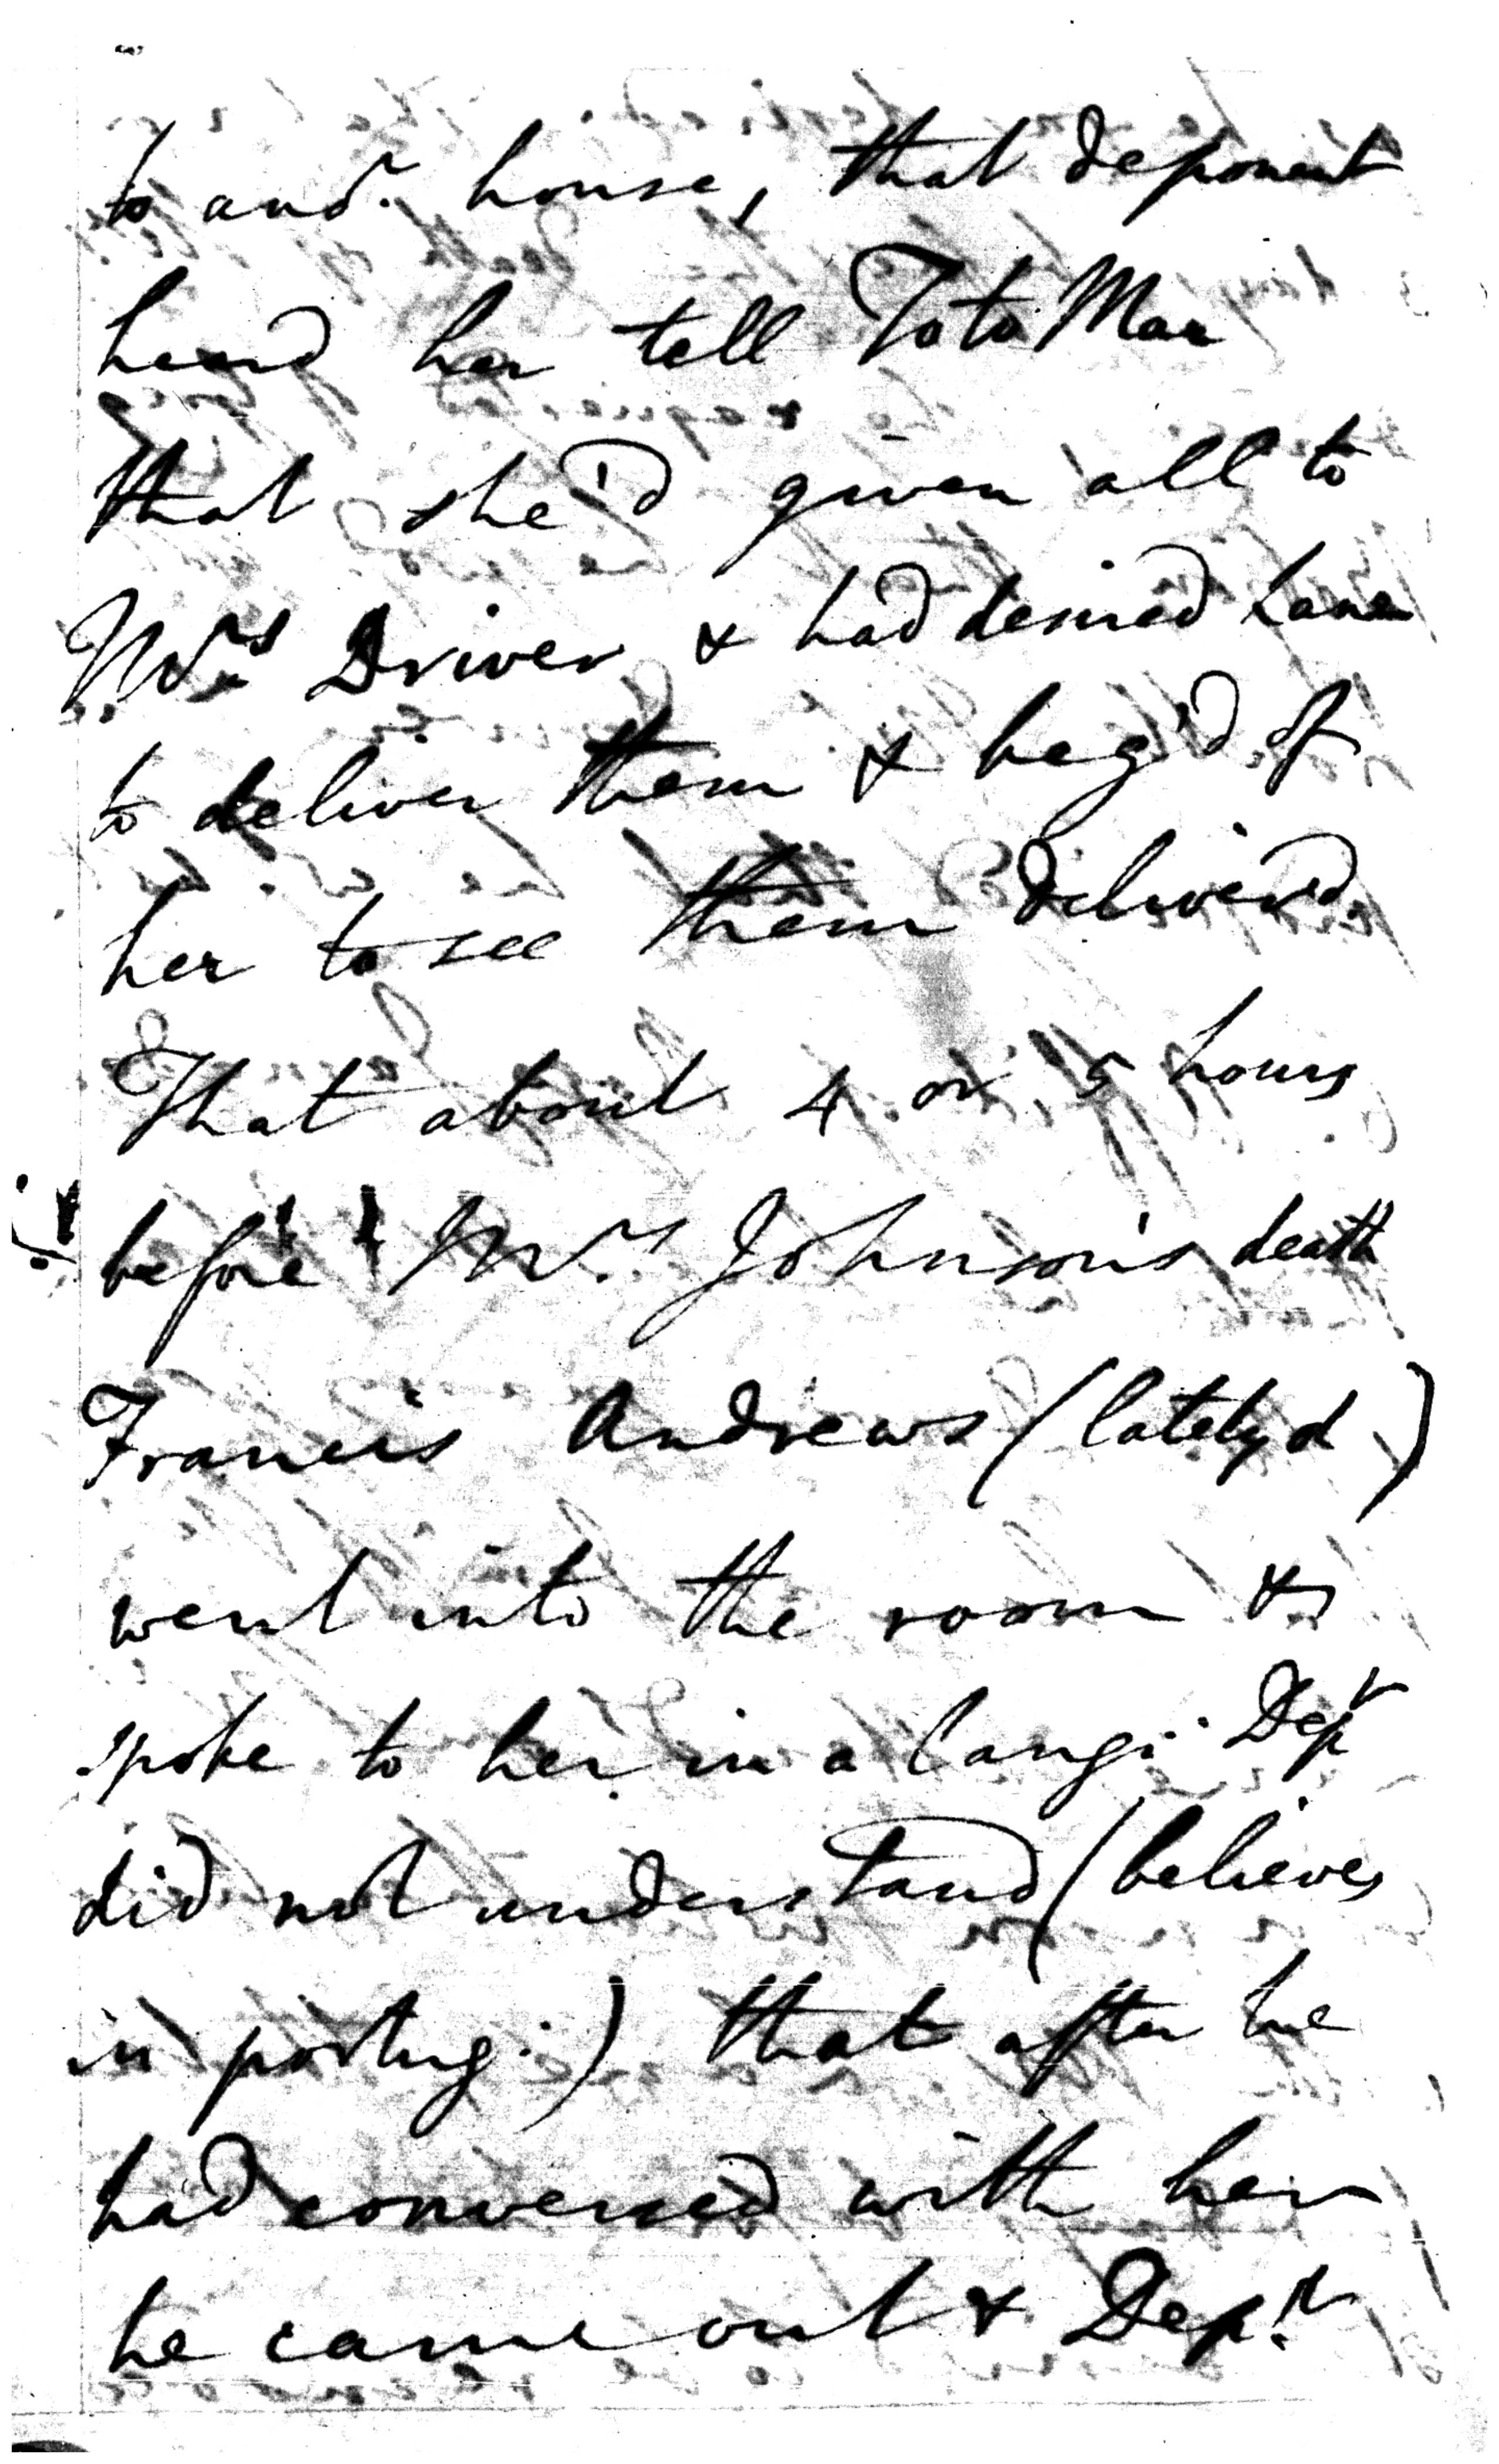 to and.r house, that deponent
heard her tell Toto Mar
that she'd given all to
Mrs Driver & had desired Lane
to deliver them & beg'd of
her to see them deliver'd,
That about 4 or 5 hours
before Mrs Johnson's death
Francis Andrews (lately d )
went into the room &
spoke to her in a lang: Dept
did not understand (believes
in portug:) that after he
had conversed with her
he came out & Dep.t